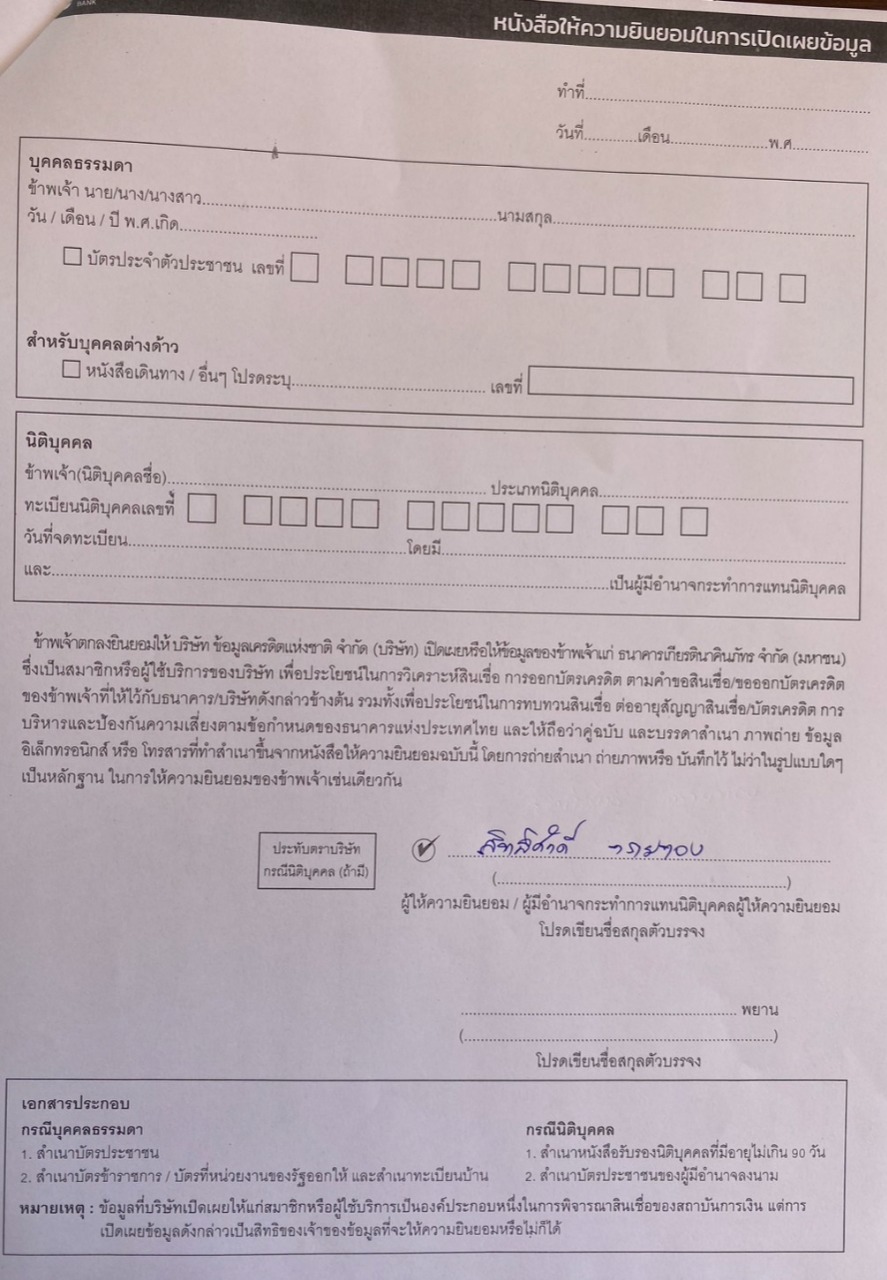 BANK
หนังสือให้ความยินยอมในการเปิดเผยข้อมูล
ทำที่
วันที่............เดือน......................พ.ศ.
บุคคลธรรมดา
ข้าพเจ้า นาย/นาง/นางสาว......................นามสกุล
วัน / เดือน / ปี พ.ศ.เกิด
บัตรประจำตัวประชาชน เลขที่
สำหรับบุคคลต่างด้าว
หนังสือเดินทาง / อื่นๆ โปรดระบุ...................... เลขที่
นิติบุคคล
ข้าพเจ้า(นิติบุคคลชื่อ)...................... ประเภทนิติบุคคล
ทะเบียนนิติบุคคลเลขที่
วันที่จดทะเบียน......................โดยมี
และ......................เป็นผู้มีอำนาจกระทำการแทนนิติบุคคล
ข้าพเจ้าตกลงยินยอมให้ บริษัท ข้อมูลเครดิตแห่งชาติ จำกัด (บริษัท) เปิดเผยหรือให้ข้อมูลของข้าพเจ้าแก่ ธนาคารเกียรตินาคินภัทร จำกัด (มหาชน)
ซึ่งเป็นสมาชิกหรือผู้ใช้บริการของบริษัท เพื่อประโยชน์ในการวิเคราะห์สินเชื่อ การออกบัตรเครดิต ตามคำขอสินเชื่อ/ขอออกบัตรเครดิต
ของข้าพเจ้าที่ให้ไว้กับธนาคาร/บริษัทดังกล่าวข้างต้น รวมทั้งเพื่อประโยชน์ในการทบทวนสินเชื่อ ต่ออายุสัญญาสินเชื่อ/บัตรเครดิต การ
บริหารและป้องกันความเสี่ยงตามข้อกำหนดของธนาคารแห่งประเทศไทย และให้ถือว่าคู่ฉบับ และบรรดาสำเนา ภาพถ่าย ข้อมูล
อิเล็กทรอนิกส์ หรือ โทรสารที่ทำสำเนาขึ้นจากหนังสือให้ความยินยอมฉบับนี้ โดยการถ่ายสำเนา ถ่ายภาพหรือ บันทึกไว้ ไม่ว่าในรูปแบบใดๆ
เป็นหลักฐาน ในการให้ความยินยอมของข้าพเจ้าเช่นเดียวกัน
ประทับตราบริษัท
กรณีนิติบุคคล (ถ้ามี)
(......................)
ผู้ให้ความยินยอม / ผู้มีอำนาจกระทำการแทนนิติบุคคลผู้ให้ความยินยอม
โปรดเขียนชื่อสกุลตัวบรรจง
...................... พยาน
(......................)
โปรดเขียนชื่อสกุลตัวบรรจง
เอกสารประกอบ
กรณีบุคคลธรรมดา
1. สำเนาบัตรประชาชน
2. สำเนาบัตรข้าราชการ / บัตรที่หน่วยงานของรัฐออกให้ และสำเนาทะเบียนบ้าน
กรณีนิติบุคคล
1. สำเนาหนังสือรับรองนิติบุคคลที่มีอายุไม่เกิน 90 วัน
2. สำเนาบัตรประชาชนของผู้มีอำนาจลงนาม
หมายเหตุ : ข้อมูลที่บริษัทเปิดเผยให้แก่สมาชิกหรือผู้ใช้บริการเป็นองค์ประกอบหนึ่งในการพิจารณาสินเชื่อของสถาบันการเงิน แต่การ
เปิดเผยข้อมูลดังกล่าวเป็นสิทธิของเจ้าของข้อมูลที่จะให้ความยินยอมหรือไม่ก็ได้